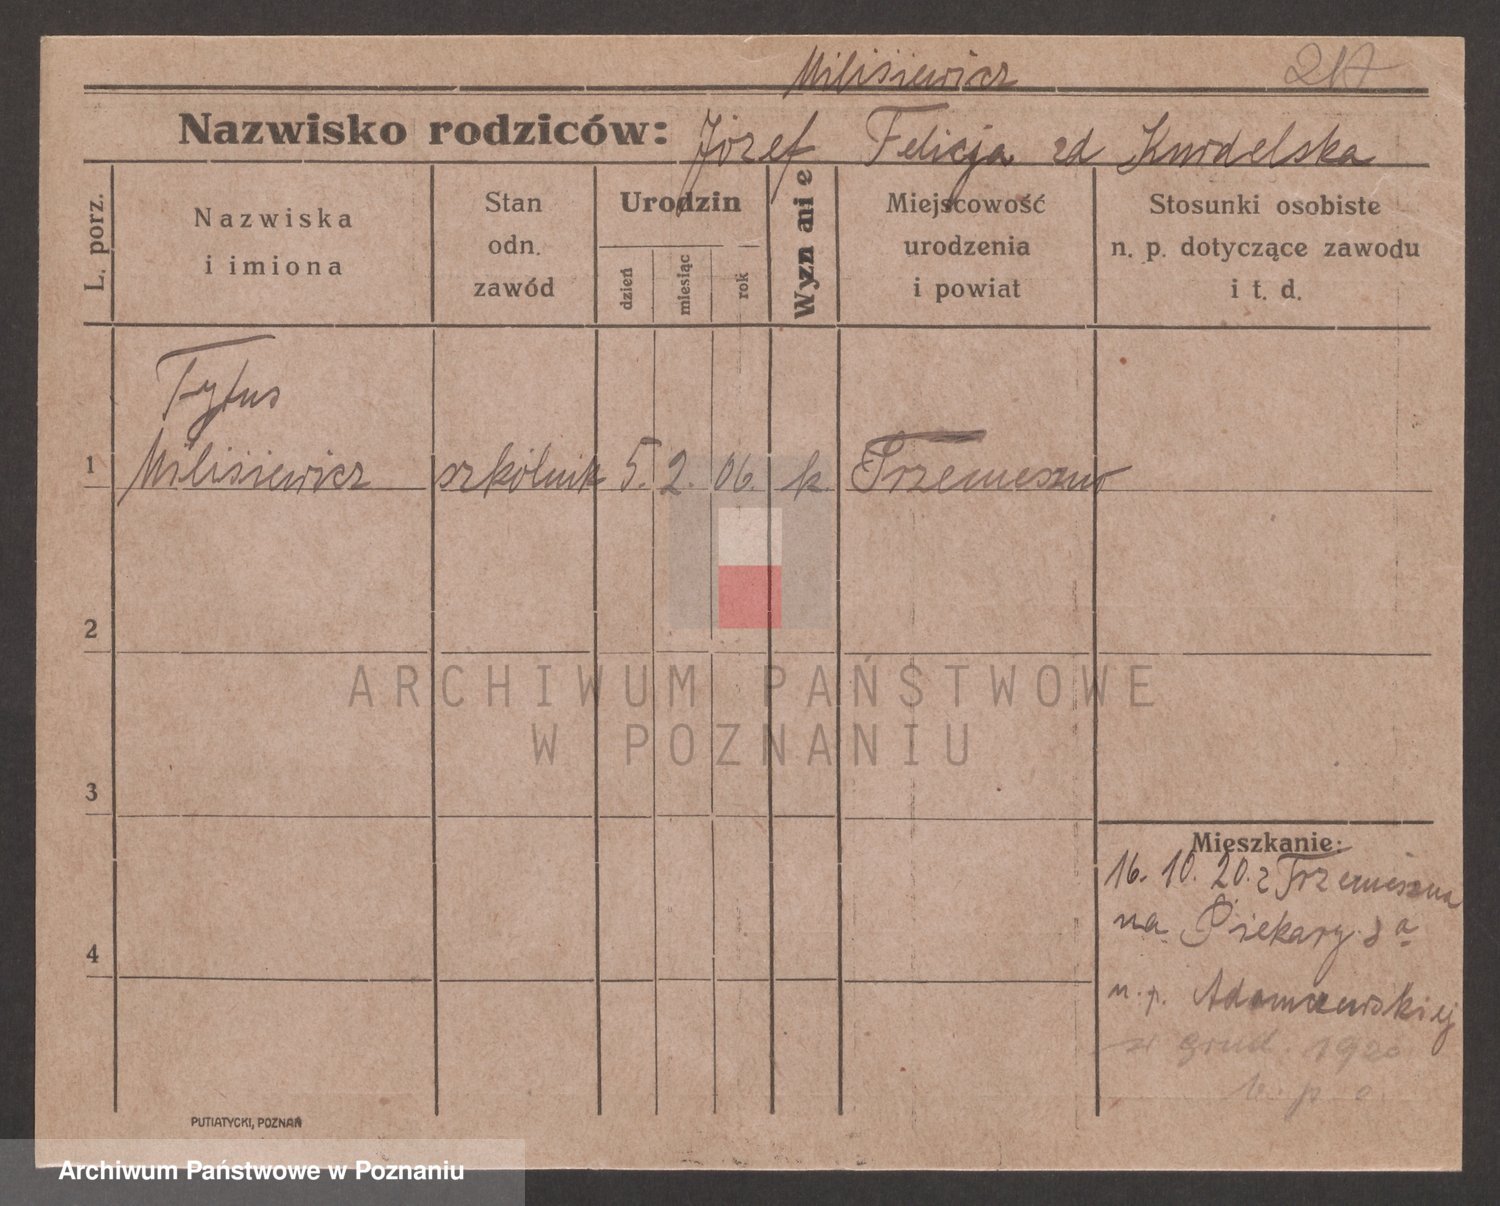 Milisiewicz 217
Nazwisko rodziców: Józef Felicja zd Kurdelska
L. porz.
Nazwiska
i imiona
Stan
odn.
zawód
Urodzin
dzień
miesiąc
rok
Wyznanie
Miejscowość
urodzenia
i powiat
Stosunki osobiste
n. p. dotyczące zawodu
i t. d.
Tytus
1 Milisiewicz szkólnik 5. 2. 06. k. Trzemeszno
2
3
4
Mieszkanie:
16. 10. 20. z Trzemeszna
na Piekary 8a
u. p. Adamczewskiej
w grud. 1920
b. p. o.
PUTIATYCKI, POZNAŃ
ARCHIWUM PAŃSTWOWE
W POZNANIU
Archiwum Państwowe w Poznaniu